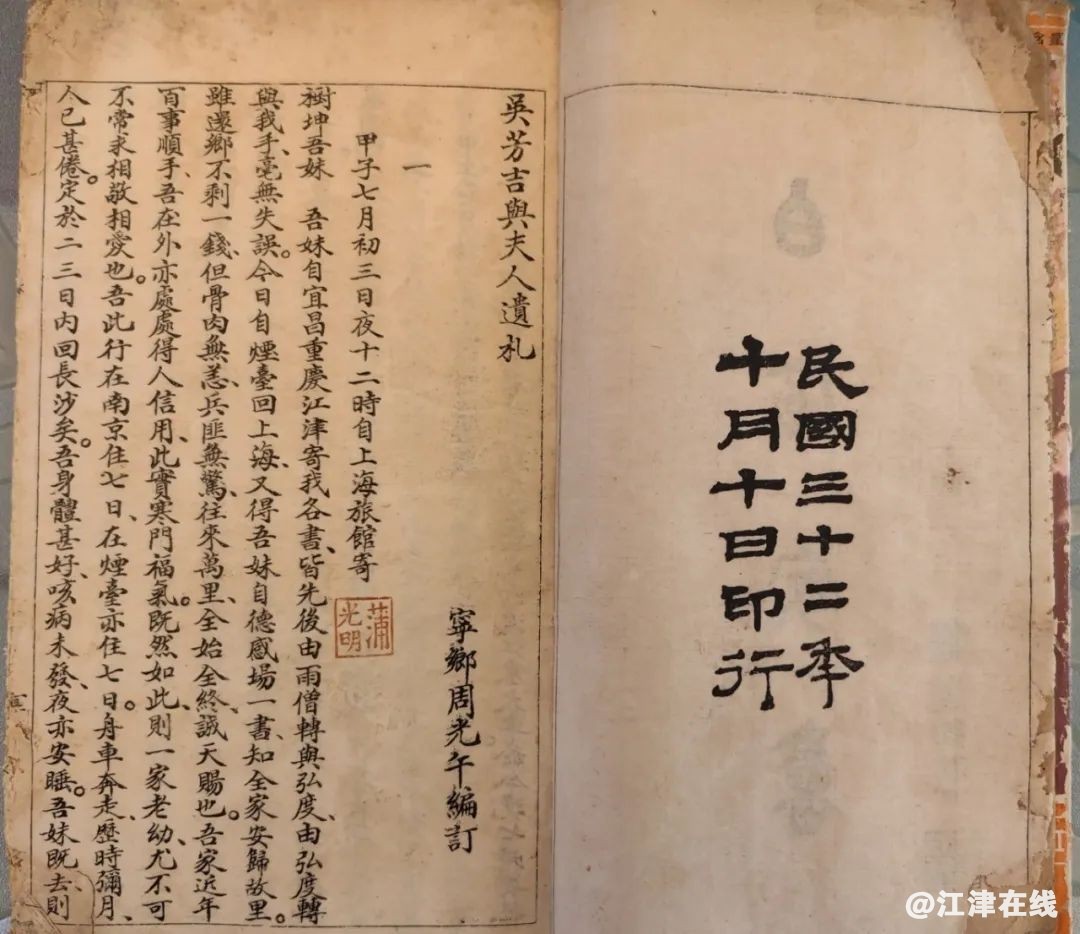 民國三十二年
十月十日印行
吳芳吉與夫人遺札
寧鄉周光午編訂
蒲光明
一
甲子七月初三日夜十二時自上海旅館寄
樹坤吾妹 吾妹自宜昌重慶江津寄我各書、皆先後由雨僧轉與弘度、由弘度轉
與我手、毫無失誤。今日自煙臺回上海、又得吾妹自德感場一書、知全家安歸故里。
雖還鄉不剩一錢、但骨肉無恙、兵匪無驚、往來萬里、全始全終、誠天賜也。吾家近年
百事順手、吾在外亦處處得人信用、此實寒門福氣。既然如此、則一家老幼、尤不可
不常求相敬相愛也。吾此行在南京住七日、在煙臺亦住七日。舟車奔走、歷時彌月、
人已甚倦。定於二三日內回長沙矣。吾身體甚好、咳病未發、夜亦安睡。吾妹既去、則
@江津在线